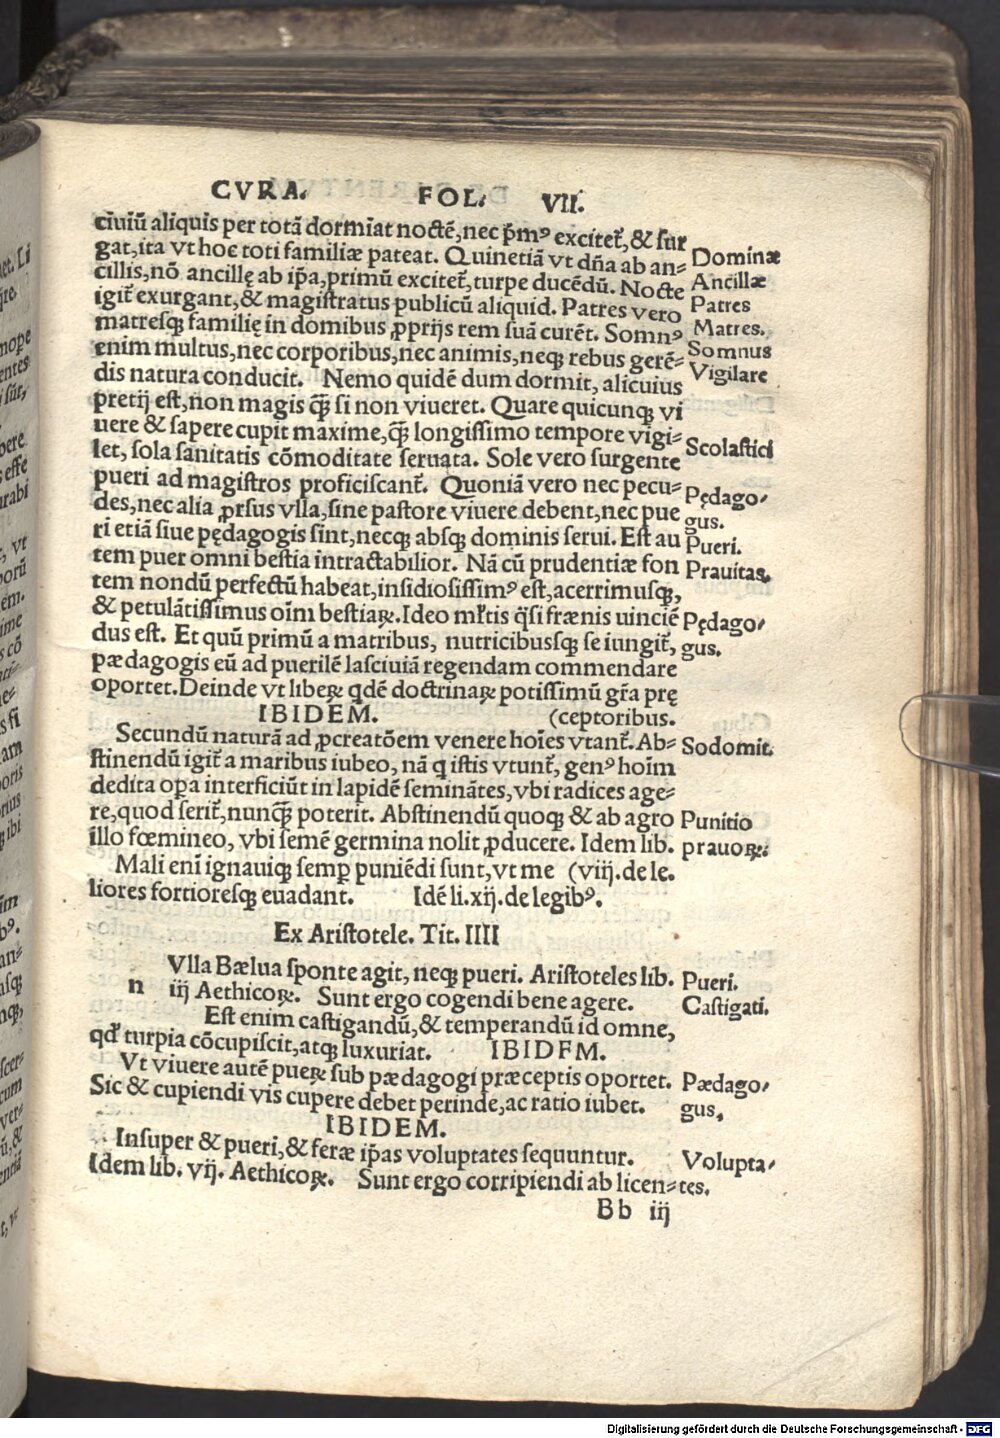 CVRA. FOL. VII.
ciuiū aliquis per totā dormiat noctē, nec p̄mꝰ excitet᷑, & sur
gat, ita vt hoc toti familiæ pateat. Quinetiā vt dn̄a ab an= Dominæ
cillis, nō ancillę ab ip̄a, primū excitet᷑, turpe ducēdū. Nocte Ancillæ
igit᷑ exurgant, & magistratus publicū aliquid. Patres vero Patres
matresqꝫ familię in domibus ꝓprijs rem suā curēt. Somnꝰ Matres.
enim multus, nec corporibus, nec animis, neqꝫ rebus gerē= Somnus
dis natura conducit. Nemo quidē dum dormit, alicuius Vigilare
pretij est, non magis qꝫ̄ si non viueret. Quare quicunqꝫ vi
uere & sapere cupit maxime, qꝫ̄ longissimo tempore vigi=
let, sola sanitatis cōmoditate seruata. Sole vero surgente Scolastici
pueri ad magistros proficiscant᷑. Quoniā vero nec pecu=
des, nec alia ꝓrsus vlla, sine pastore viuere debent, nec pue Pędago,
ri etiā siue pędagogis sint, necqꝫ absqꝫ dominis serui. Est au gus.
tem puer omni bestia intractabilior. Nā cū prudentiæ fon Pueri.
tem nondū perfectū habeat, insidiosissimꝰ est, acerrimusqꝫ, Prauitas.
& petulātissimus oīm bestiaꝝ. Ideo mł̓tis q̄si frænis uinciē Pędago,
dus est. Et quū primū a matribus, nutricibusqꝫ se iungit᷑, gus.
pædagogis eū ad puerilē lasciuiā regendam commendare
oportet. Deinde vt libeꝝ qdē doctrinaꝝ potissimū gr̄a prę
IBIDEM. (ceptoribus.
Secundū naturā ad ꝓcreatōem venere hoīes vtant᷑. Ab= Sodomit.
stinendū igit᷑ a maribus iubeo, nā q istis vtunt᷑, genꝰ hoīm
dedita oꝑa interficiūt in lapidē seminātes, vbi radices age=
re, quod serit᷑, nunqꝫ̄ poterit. Abstinendū quoqꝫ & ab agro Punitio
illo fœmineo, vbi semē germina nolit ꝓducere. Idem lib. prauoꝝ.
Mali enī ignauiqꝫ semꝑ puniēdi sunt, vt me (viij. de le.
liores fortioresqꝫ euadant. Idē li. xij. de legibꝰ.
Ex Aristotele. Tit. IIII
n Vlla Bælua sponte agit, neqꝫ pueri. Aristoteles lib. Pueri.
iij Aethicoꝝ. Sunt ergo cogendi bene agere. Castigati.
Est enim castigandū, & temperandū id omne,
qd̓ turpia cōcupiscit, atqꝫ luxuriat. IBIDEM.
Vt viuere autē pueꝝ sub pædagogi præceptis oportet. Pædago,
Sic & cupiendi vis cupere debet perinde, ac ratio iubet. gus.
IBIDEM.
Insuper & pueri, & feræ ip̄as voluptates sequuntur. Volupta,
Idem lib. vij. Aethicoꝝ. Sunt ergo corripiendi ab licen= tes.
Bb iij
Digitalisierung gefördert durch die Deutsche Forschungsgemeinschaft - DFG